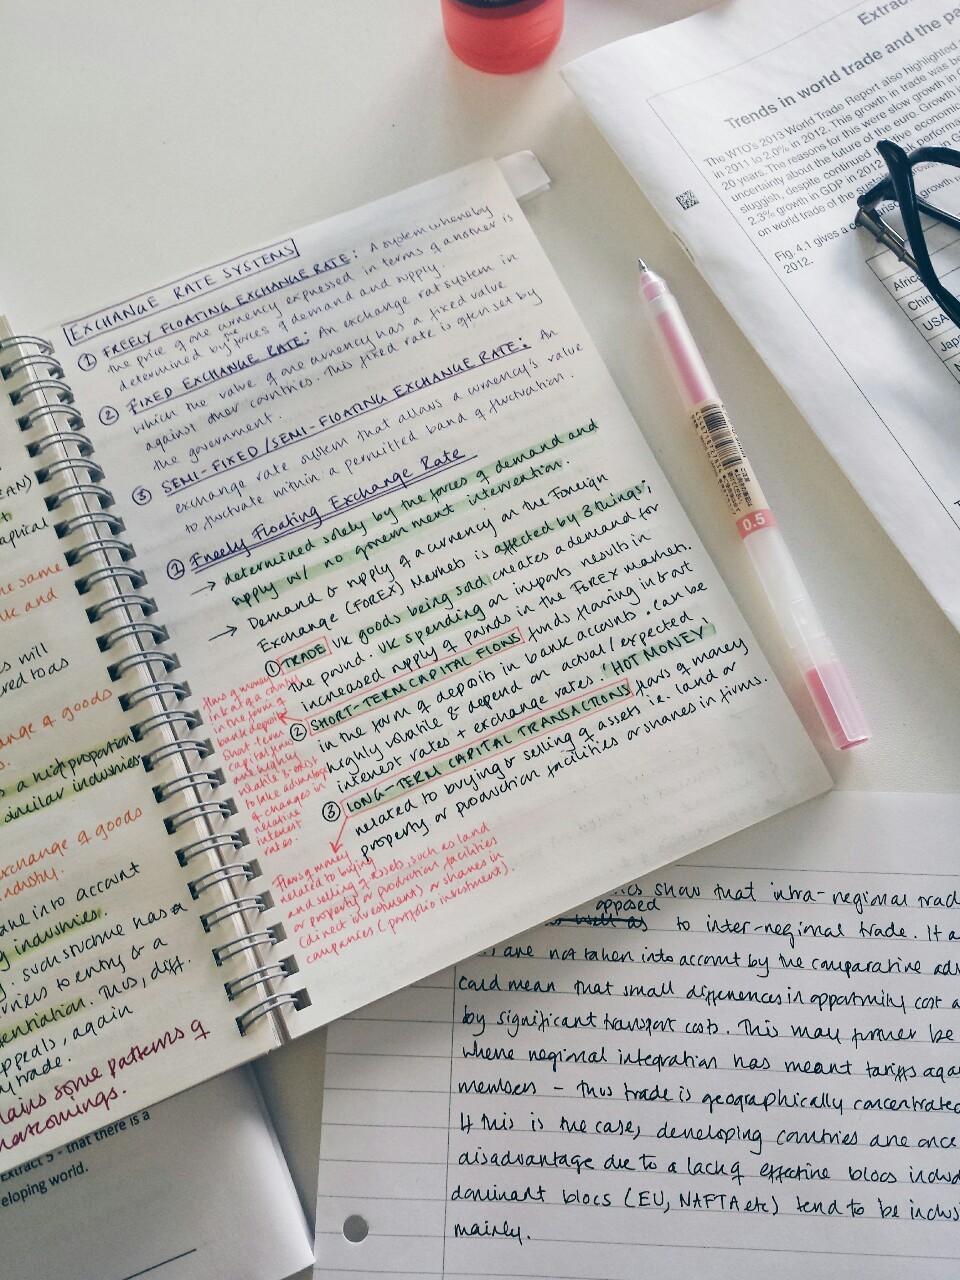 EXCHANGE RATE SYSTEMS
① FREELY FLOATING EXCHANGE RATE: A system whereby
the price of one currency expressed in terms of another is
determined by forces of demand and supply.
② FIXED EXCHANGE RATE: An exchange rate system in
which the value of one currency has a fixed value
against other countries. This fixed rate is often set by
the government.
③ SEMI-FIXED/SEMI-FLOATING EXCHANGE RATE: An
exchange rate system that allows a currency's value
to fluctuate within a permitted band of fluctuation.
① Freely Floating Exchange Rate
→ determined solely by the forces of demand and
supply w/ no government intervention.
→ Demand & supply of a currency on the Foreign
Exchange (FOREX) Markets is affected by 3 things;
① TRADE UK goods being sold creates a demand for
the pound. UK spending on imports results in
increased supply of pounds in the FOREX markets.
② SHORT-TERM CAPITAL FLOWS funds flowing in & out
in the form of deposits in bank accounts. can be
highly volatile & depend on actual/expected
interest rates + exchange rates. 'HOT MONEY'
③ LONG-TERM CAPITAL TRANSACTIONS flows of money
related to buying & selling of assets i.e. land or
property or production facilities or shares in firms.
flows of money
in & out of a country
in the form of
bank deposits
short-term
capital flows
are highly
volatile & exist
to take advantage
of changes in
relative
interest
rates.
flows of money
related to buying
and selling of assets, such as land
or property or production facilities
(direct investment) or shares in
companies (portfolio investment).
EAN)
raphical
the same
UK and
es will
red to as
ange of goods
s a high proportion
similar industries
exchange of goods
industry.
take into account
g industries.
. such structure has a
rriers to entry & a
erentiation. Thus, diff.
appeals, again
y trade.
lains some patterns of
hortcomings.
Extract 5 - that there is a
eloping world.
Extrac
Trends in world trade and the pa
The WTO's 2013 World Trade Report also highlighted
in 2011 to 2.0% in 2012. This growth in trade was be
20 years. The reasons for this were slow growth in
uncertainty about the future of the euro. Growth
sluggish, despite continued economic
2.3% growth in GDP in 2012 performan
on world trade of the growth
Fig. 4.1 gives a
2012.
Africa
China
USA
Japan
0.5
ics show that intra-regional trad
opposed
as well as to inter-regional trade. It a
, are not taken into account by the comparative adv
could mean that small differences in opportunity cost a
by significant transport costs. This may further be
where regional integration has meant tariffs aga
members – thus trade is geographically concentrated
If this is the case, developing countries are once
disadvantage due to a lack of effective blocs inclu
dominant blocs (EU, NAFTA etc) tend to be inclus
mainly.